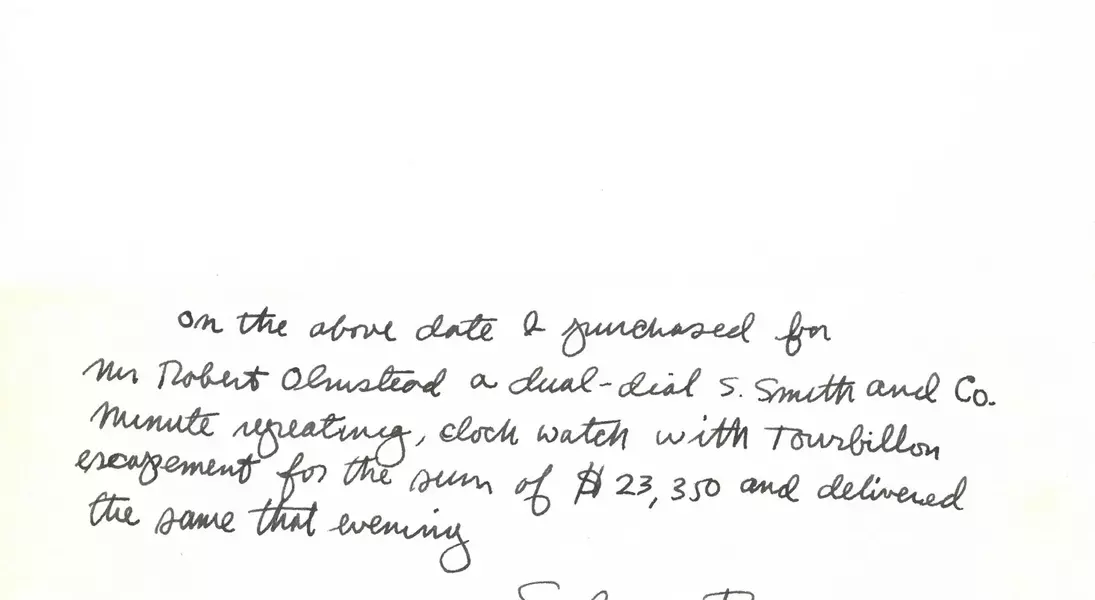 on the above date I purchased for
Mr Robert Olmstead a dual-dial S. Smith and Co.
Minute repeating, clock watch with Tourbillon
escapement for the sum of $ 23,350 and delivered
the same that evening